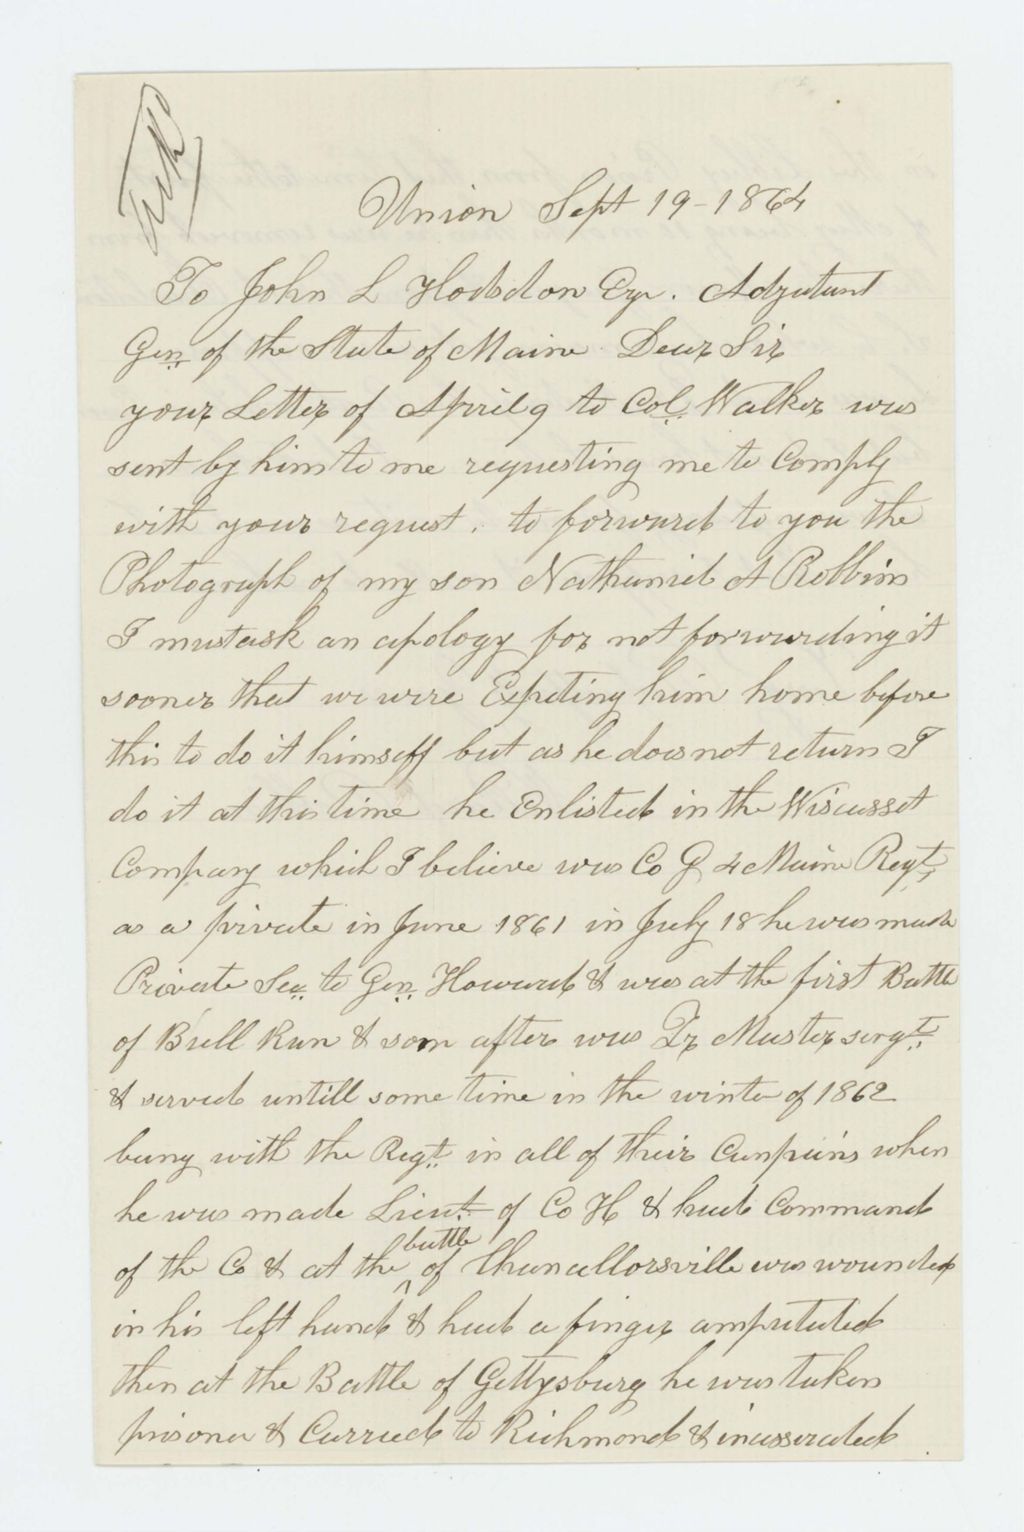 Union Sept 19 - 1864
To John L Hodsdon Esqr. Adjutant
Gen of the State of Maine Dear Sir
your Letter of April 9 to Col. Walker was
sent by him to me requesting me to Comply
with your request. to forward to you the
Photograph of my son Nathaniel A Robbins
I must ask an apology for not forwarding it
sooner that we were Expeting him home before
this to do it himself but as he does not return I
do it at this time he Enlisted in the Wiscasset
Company which I believe was Co G 4 Maine Regt.
as a private in June 1861 in July 18 he was made
Private Sec. to Gen. Howard & was at the first Battle
of Bull Run & soon after was Qr Master sergt.
& served untill some time in the winter of 1862
being with the Regt. in all of their Campains when
he was made Lieut. of Co H & had Command
of the Co & at the battle of Chancellorsville was wounded
in his left hand & had a finger amputated
then at the Battle of Gettysburg he was taken
prisoner & Carried to Richmond & incasserated